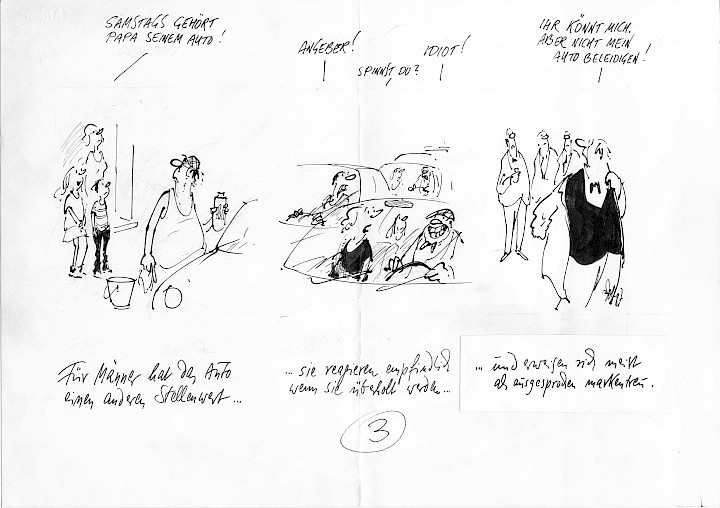 SAMSTAGS GEHÖRT
PAPA SEINEM AUTO!
ANGEBER!
SPINNST DU?
IDIOT!
IHR KÖNNT MICH,
ABER NICHT MEIN
AUTO BELEIDIGEN!
Für Männer hat das Auto
einen anderen Stellenwert...
...sie reagieren empfindlich
wenn sie überholt werden...
...und erweisen sich meist
als ausgesprochen markentreu.
3